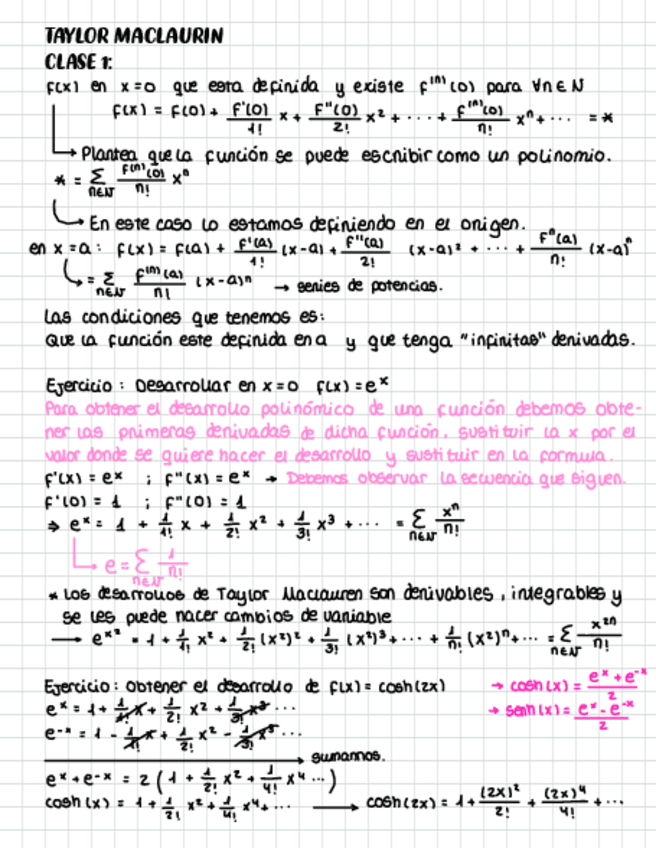 TAYLOR MACLAURIN
CLASE 1:
f(x) en x=0 que esta definida y existe f⁽ⁿ⁾(0) para ∀n∈N
f(x) = f(0) + f'(0)/1! x + f''(0)/2! x² + ··· + f⁽ⁿ⁾(0)/n! xⁿ + ··· = *
Plantea que la función se puede escribir como un polinomio.
* = Σ n∈N f⁽ⁿ⁾(0)/n! xⁿ
En este caso lo estamos definiendo en el origen.
en x=a: f(x) = f(a) + f'(a)/1! (x-a) + f''(a)/2! (x-a)² + ··· + fⁿ(a)/n! (x-a)ⁿ
= Σ n∈N f⁽ⁿ⁾(a)/n! (x-a)ⁿ → series de potencias.
Las condiciones que tenemos es:
Que la función este definida en a y que tenga "infinitas" derivadas.
Ejercicio: Desarrollar en x=0 f(x)=eˣ
Para obtener el desarrollo polinómico de una función debemos obte-
ner las primeras derivadas de dicha función, sustituir la x por el
valor donde se quiere hacer el desarrollo y sustituir en la formula.
f'(x) = eˣ ; f''(x) = eˣ → Debemos observar la secuencia que siguen.
f'(0) = 1 ; f''(0) = 1
⇒ eˣ = 1 + 1/1! x + 1/2! x² + 1/3! x³ + ··· = Σ n∈N xⁿ/n!
e = Σ n∈N 1/n!
* Los desarrollos de Taylor Maclauren son derivables, integrables y
se les puede hacer cambios de variable
→ e^x² = 1 + 1/1! x² + 1/2! (x²)² + 1/3! (x²)³ + ··· + 1/n! (x²)ⁿ + ··· = Σ n∈N x²ⁿ/n!
Ejercicio: Obtener el desarrollo de f(x) = cosh(2x) → cosh(x) = eˣ+e⁻ˣ/2
eˣ = 1 + 1/1! x + 1/2! x² + 1/3! x³ ··· → senh(x) = eˣ-e⁻ˣ/2
e⁻ˣ = 1 - 1/1! x + 1/2! x² - 1/3! x³ ···
→ sumamos.
eˣ+e⁻ˣ = 2 (1 + 1/2! x² + 1/4! x⁴ ···)
cosh(x) = 1 + 1/2! x² + 1/4! x⁴ + ··· → cosh(2x) = 1 + (2x)²/2! + (2x)⁴/4! + ···